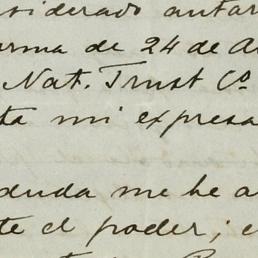 siderado autor
orma de 24 de A
Nat. Trust Co
ta mi expresa
duda me he a
te el poder; e